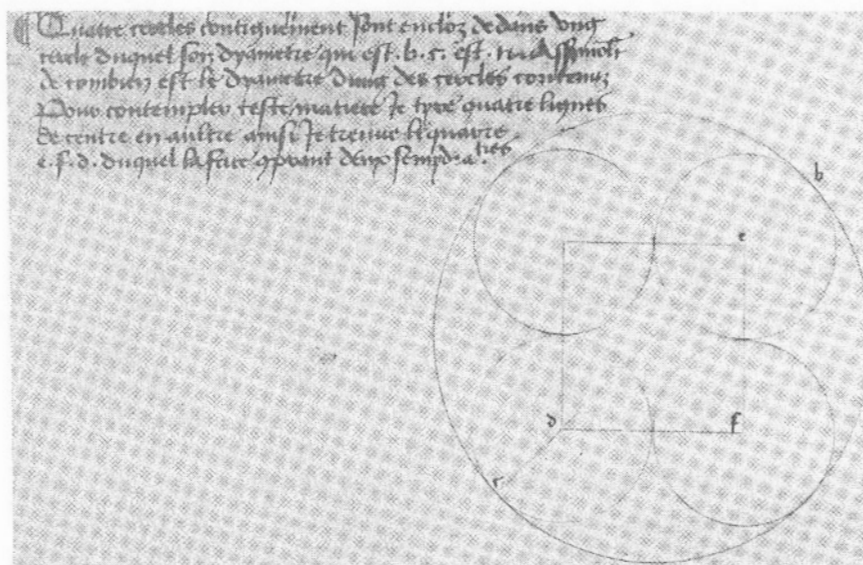 Quatre cercles contiguement sont encloz dedans ung
cercle duquel son dyametre qui est .b.c. est
de combien est le dyametre dung des cercles contenuz
Pour contempler ceste matiere Je tyre quatre lignes
de centre en aultre ainsi Je treuve le quarre
e.f.d. duquel la face deux semydia.tres
b
e
d
f
c